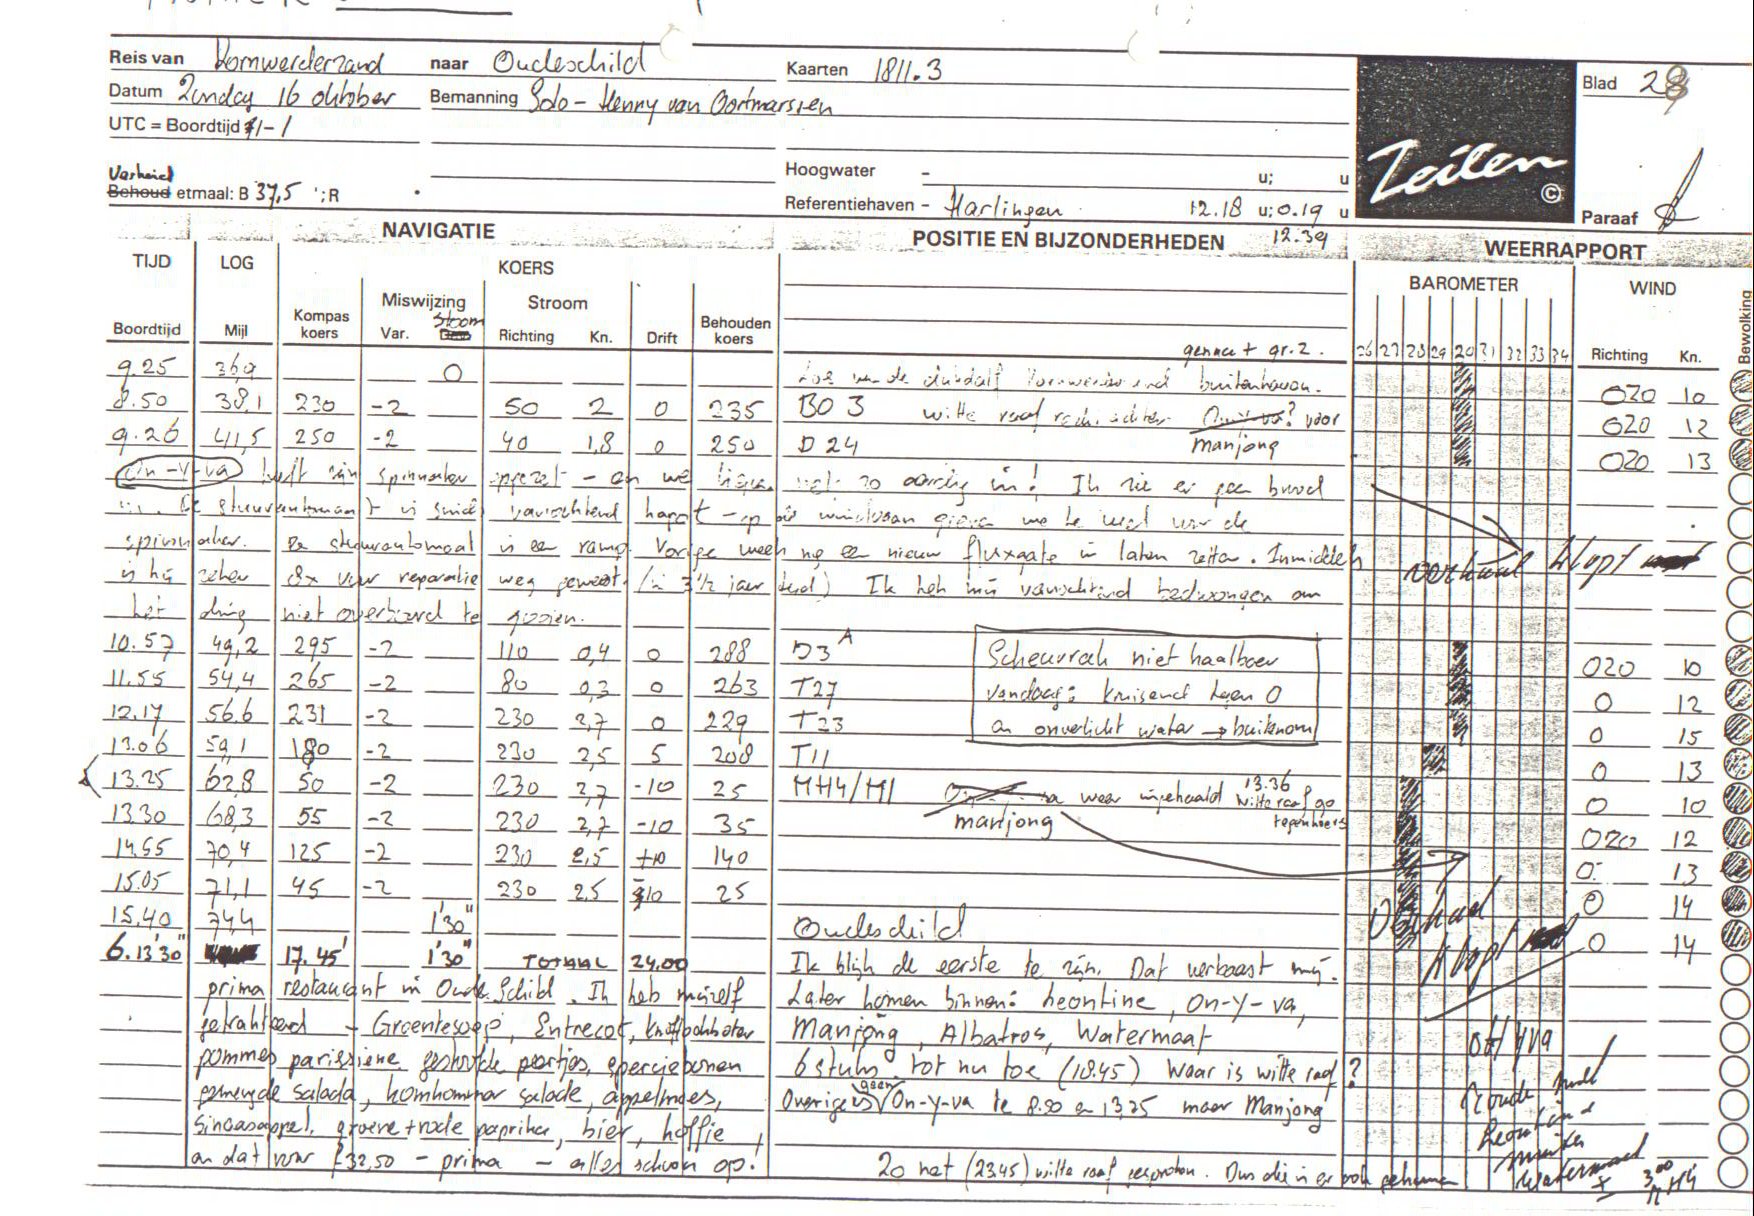 Reis van Kornwerderzand naar Oudeschild Kaarten 1811.3 Blad 28
Datum Zondag 16 oktober Bemanning Solo - Henny van Oortmarssen
UTC = Boordtijd -1
Zeilen ©
Hoogwater - u; u
Verheid
Behoud etmaal: B 37,5 '; R
Referentiehaven - Harlingen 12.18 u; 0.19 u Paraaf
12.39
NAVIGATIE POSITIE EN BIJZONDERHEDEN WEERRAPPORT
TIJD LOG KOERS BAROMETER WIND
Miswijzing Stroom
Boordtijd Mijl Kompas koers Var. Stroom Richting Kn. Drift Behouden koers Richting Kn. Bewolking
genua + gr. 2. 26 27 28 29 20 31 32 33 34
9.25 36,9 0 Los van de dukdalf Kornwerderzand buitenhaven. OZO 10
8.50 38,1 230 -2 50 2 0 235 BO 3 witte raaf rechtsachter voor OZO 12
9.26 41,5 250 -2 40 1,8 0 250 D 24 Manjong OZO 13
On-y-va heeft zijn spinnaker opgezet - en we liepen net zo aardig in! Ik zie er geen brood
in. De stuurautomaat is sinds vanochtend kapot - op windvaan gieren we te veel voor de
spinnaker. De stuurautomaat is een ramp. Vorige week nog een nieuw fluxgate in laten zetten. Inmiddels
is hij zeker 8x voor reparatie weg geweest (in 3 1/2 jaar tijd) Ik heb mij vanochtend bedwongen om
het ding niet overboord te gooien.
verhaal klopt
10.57 49,2 295 -2 110 0,4 0 288 D3A Scheurrak niet haalbaar OZO 10
11.55 54,4 265 -2 80 0,3 0 263 T27 vandaag: kruisend tegen O O 12
12.17 56.6 231 -2 230 2,7 0 229 T23 en onverlicht water → buitenom O 15
13.06 59,1 180 -2 230 2,5 5 208 T11 O 13
13.25 62,8 50 -2 230 2,7 -10 25 MH4/M1 weer ingehaald 13.36 witte raaf op tegenkoers O 10
13.30 68,3 55 -2 230 2,7 -10 35 manjong OZO 12
14.55 70,4 125 -2 230 2,5 +10 140 O 13
15.05 71,1 45 -2 230 2.5 -10 25 O 14
15.40 74,4 1'30" Oudeschild O 14
6.13'30" 17.45' 1'30" TOTAAL 24.00 Ik blijk de eerste te zijn. Dat verbaast mij.
verhaal klopt
prima restaurant in Oude Schild. Ik heb mijzelf Later komen binnen: Leontine, On-y-va,
getrakteerd - Groentesoep, Entrecot, knoflookboter Manjong, Albatros, Watermaat
pommes parissiene gestoofde peertjes, sperciebonen 6 stuks tot nu toe (18.45) Waar is witte raaf?
gemengde salada, komkommer salade, appelmoes, Overigens geen On-y-va te 8.50 en 13,25 maar Manjong
Sinaasappel, groene + rode paprika, bier, koffie,
en dat voor f 32,50 - prima - alles schoon op! Zo net (23.45) witte raaf gesproken. Dus die is er ook gekomen